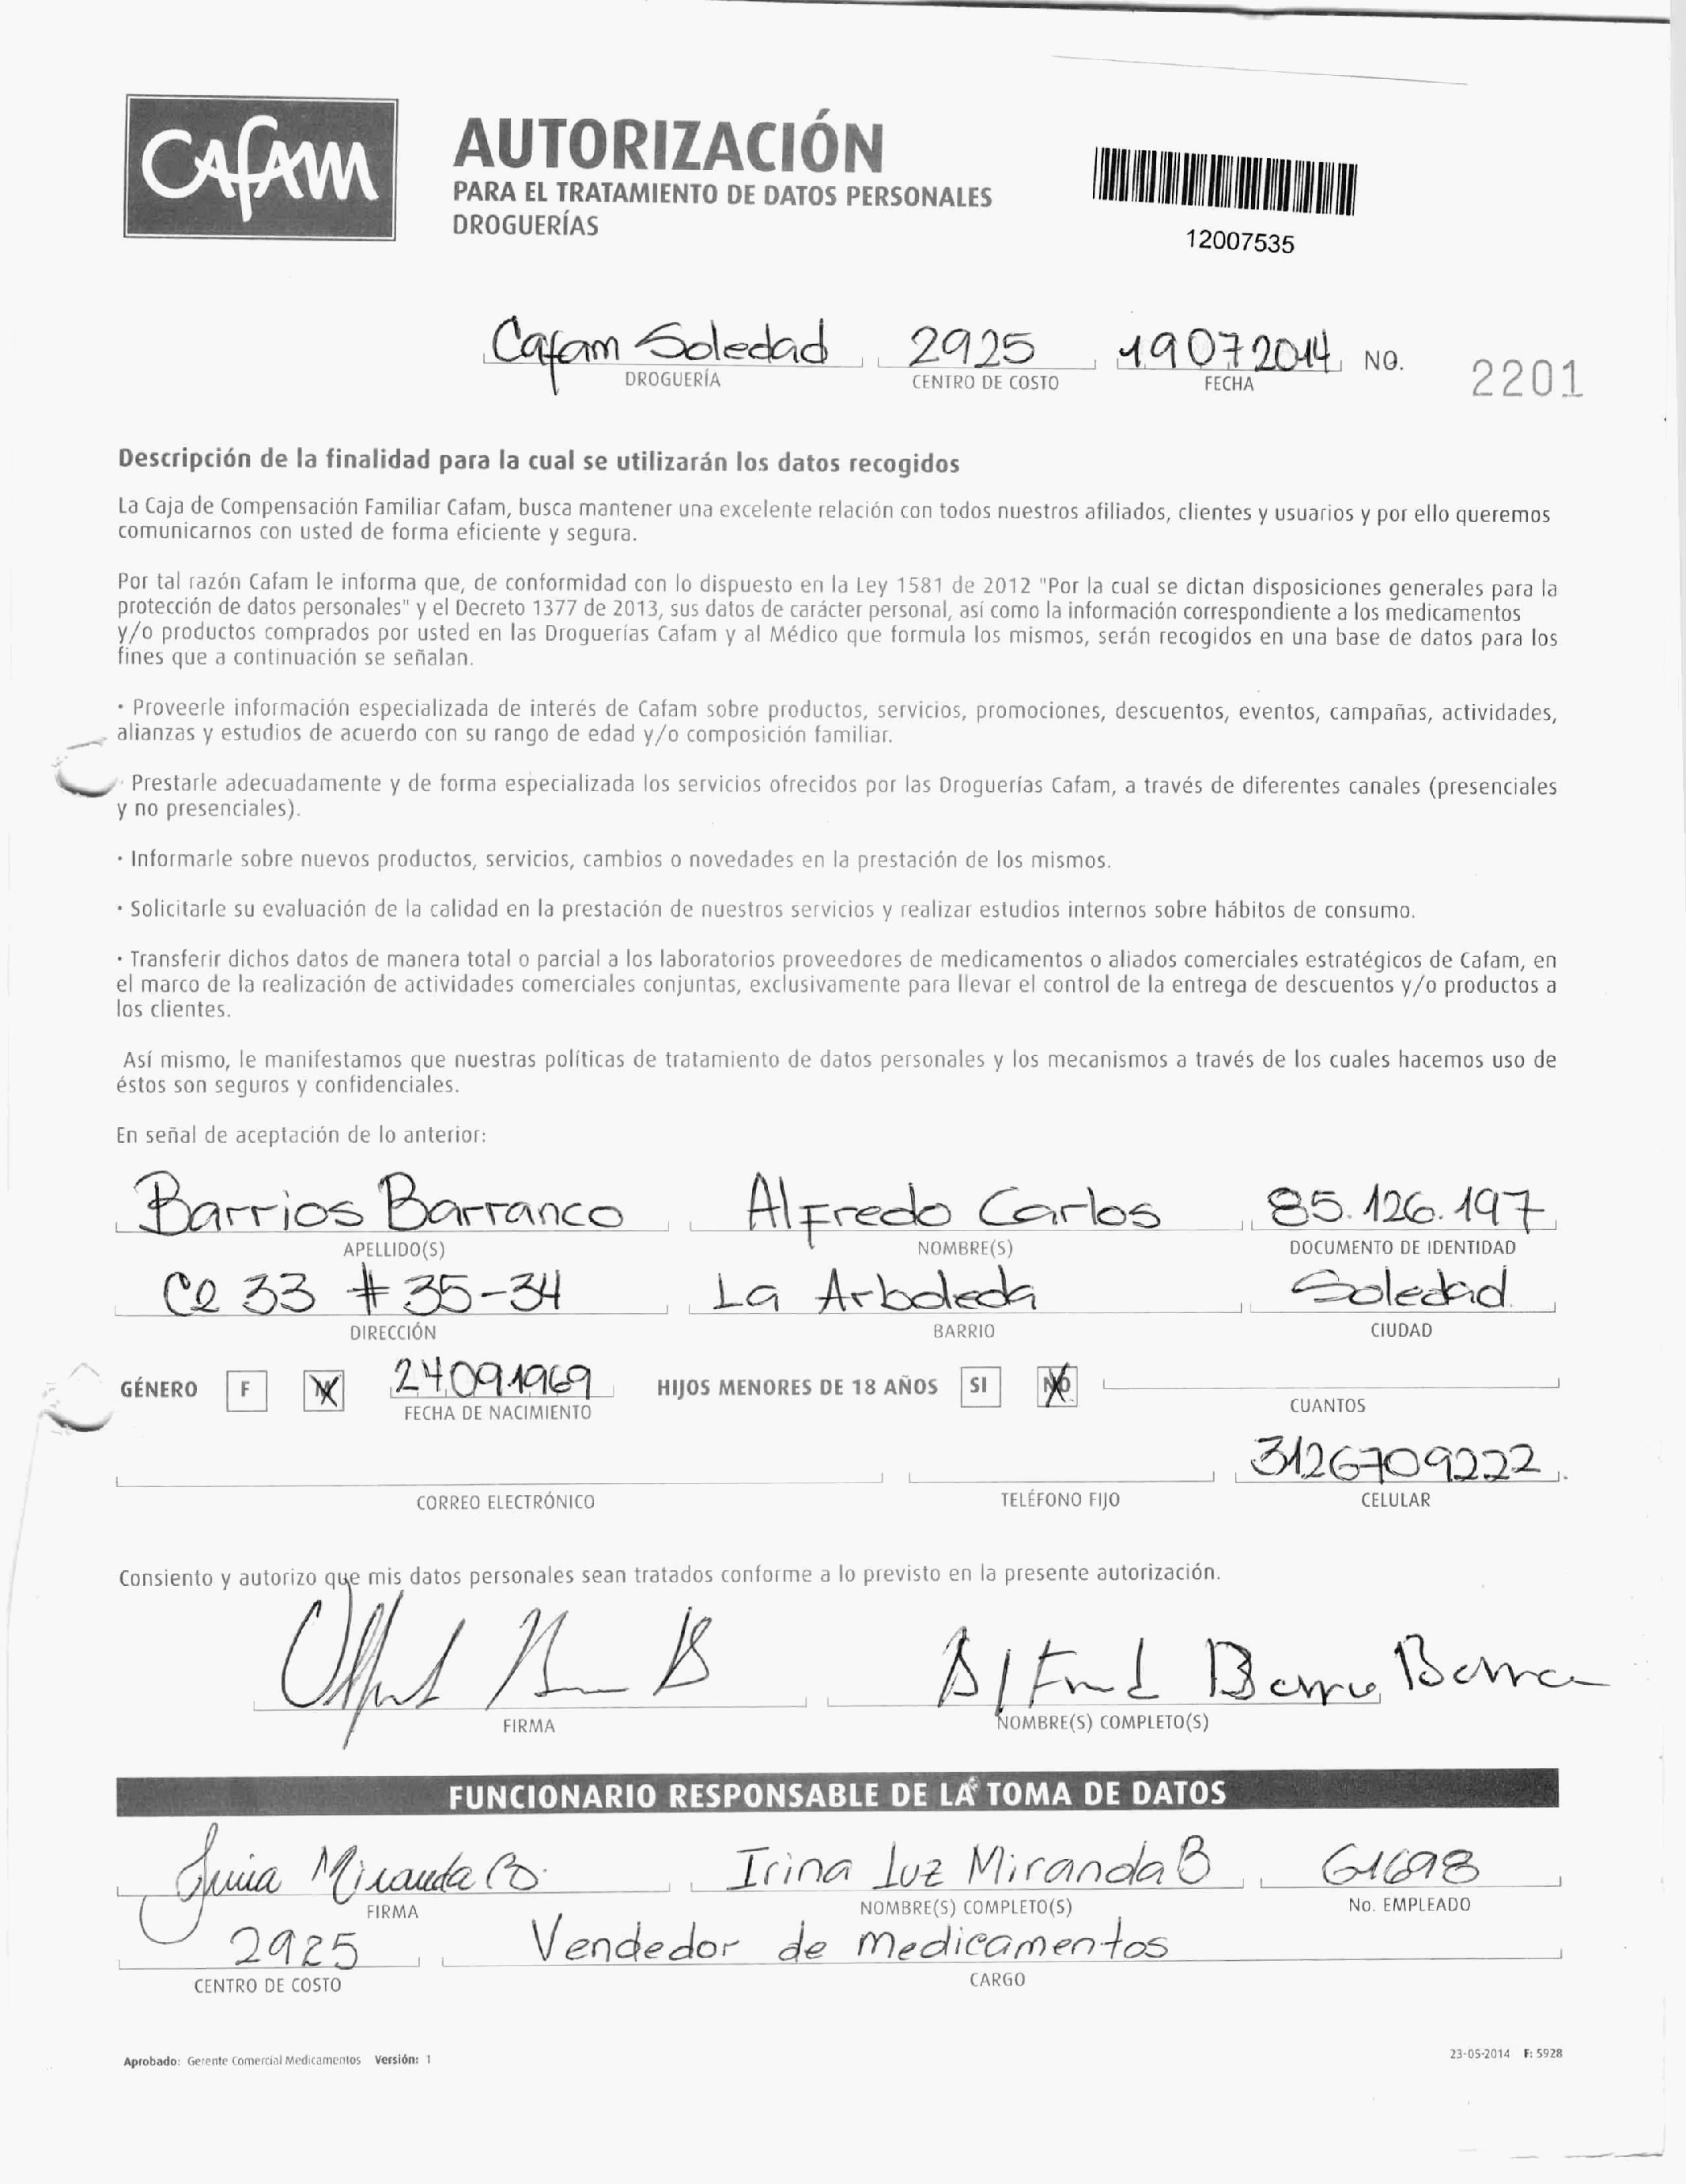 CAFAM
AUTORIZACIÓN
PARA EL TRATAMIENTO DE DATOS PERSONALES
DROGUERÍAS
12007535
Cafam Soledad 2925 19072014 NO. 2201
DROGUERÍA CENTRO DE COSTO FECHA
Descripción de la finalidad para la cual se utilizarán los datos recogidos
La Caja de Compensación Familiar Cafam, busca mantener una excelente relación con todos nuestros afiliados, clientes y usuarios y por ello queremos
comunicarnos con usted de forma eficiente y segura.
Por tal razón Cafam le informa que, de conformidad con lo dispuesto en la Ley 1581 de 2012 "Por la cual se dictan disposiciones generales para la
protección de datos personales" y el Decreto 1377 de 2013, sus datos de carácter personal, así como la información correspondiente a los medicamentos
y/o productos comprados por usted en las Droguerías Cafam y al Médico que formula los mismos, serán recogidos en una base de datos para los
fines que a continuación se señalan.
· Proveerle información especializada de interés de Cafam sobre productos, servicios, promociones, descuentos, eventos, campañas, actividades,
alianzas y estudios de acuerdo con su rango de edad y/o composición familiar.
· Prestarle adecuadamente y de forma especializada los servicios ofrecidos por las Droguerías Cafam, a través de diferentes canales (presenciales
y no presenciales).
· Informarle sobre nuevos productos, servicios, cambios o novedades en la prestación de los mismos.
· Solicitarle su evaluación de la calidad en la prestación de nuestros servicios y realizar estudios internos sobre hábitos de consumo.
· Transferir dichos datos de manera total o parcial a los laboratorios proveedores de medicamentos o aliados comerciales estratégicos de Cafam, en
el marco de la realización de actividades comerciales conjuntas, exclusivamente para llevar el control de la entrega de descuentos y/o productos a
los clientes.
Así mismo, le manifestamos que nuestras políticas de tratamiento de datos personales y los mecanismos a través de los cuales hacemos uso de
éstos son seguros y confidenciales.
En señal de aceptación de lo anterior:
Barrios Barranco Alfredo Carlos 85.126.197
APELLIDO(S) NOMBRE(S) DOCUMENTO DE IDENTIDAD
Cl 33 # 35-34 La Arboleda Soledad
DIRECCIÓN BARRIO CIUDAD
GÉNERO F M 24.09.1969 HIJOS MENORES DE 18 AÑOS SI NO
FECHA DE NACIMIENTO CUANTOS
3126709222
CORREO ELECTRÓNICO TELÉFONO FIJO CELULAR
Consiento y autorizo que mis datos personales sean tratados conforme a lo previsto en la presente autorización.
FIRMA NOMBRE(S) COMPLETO(S)
FUNCIONARIO RESPONSABLE DE LA TOMA DE DATOS
Miranda B. Irina Luz Miranda B 61698
FIRMA NOMBRE(S) COMPLETO(S) No. EMPLEADO
2925 Vendedor de medicamentos
CENTRO DE COSTO CARGO
Aprobado: Gerente Comercial Medicamentos Versión: 1 23-05-2014 F: 5928